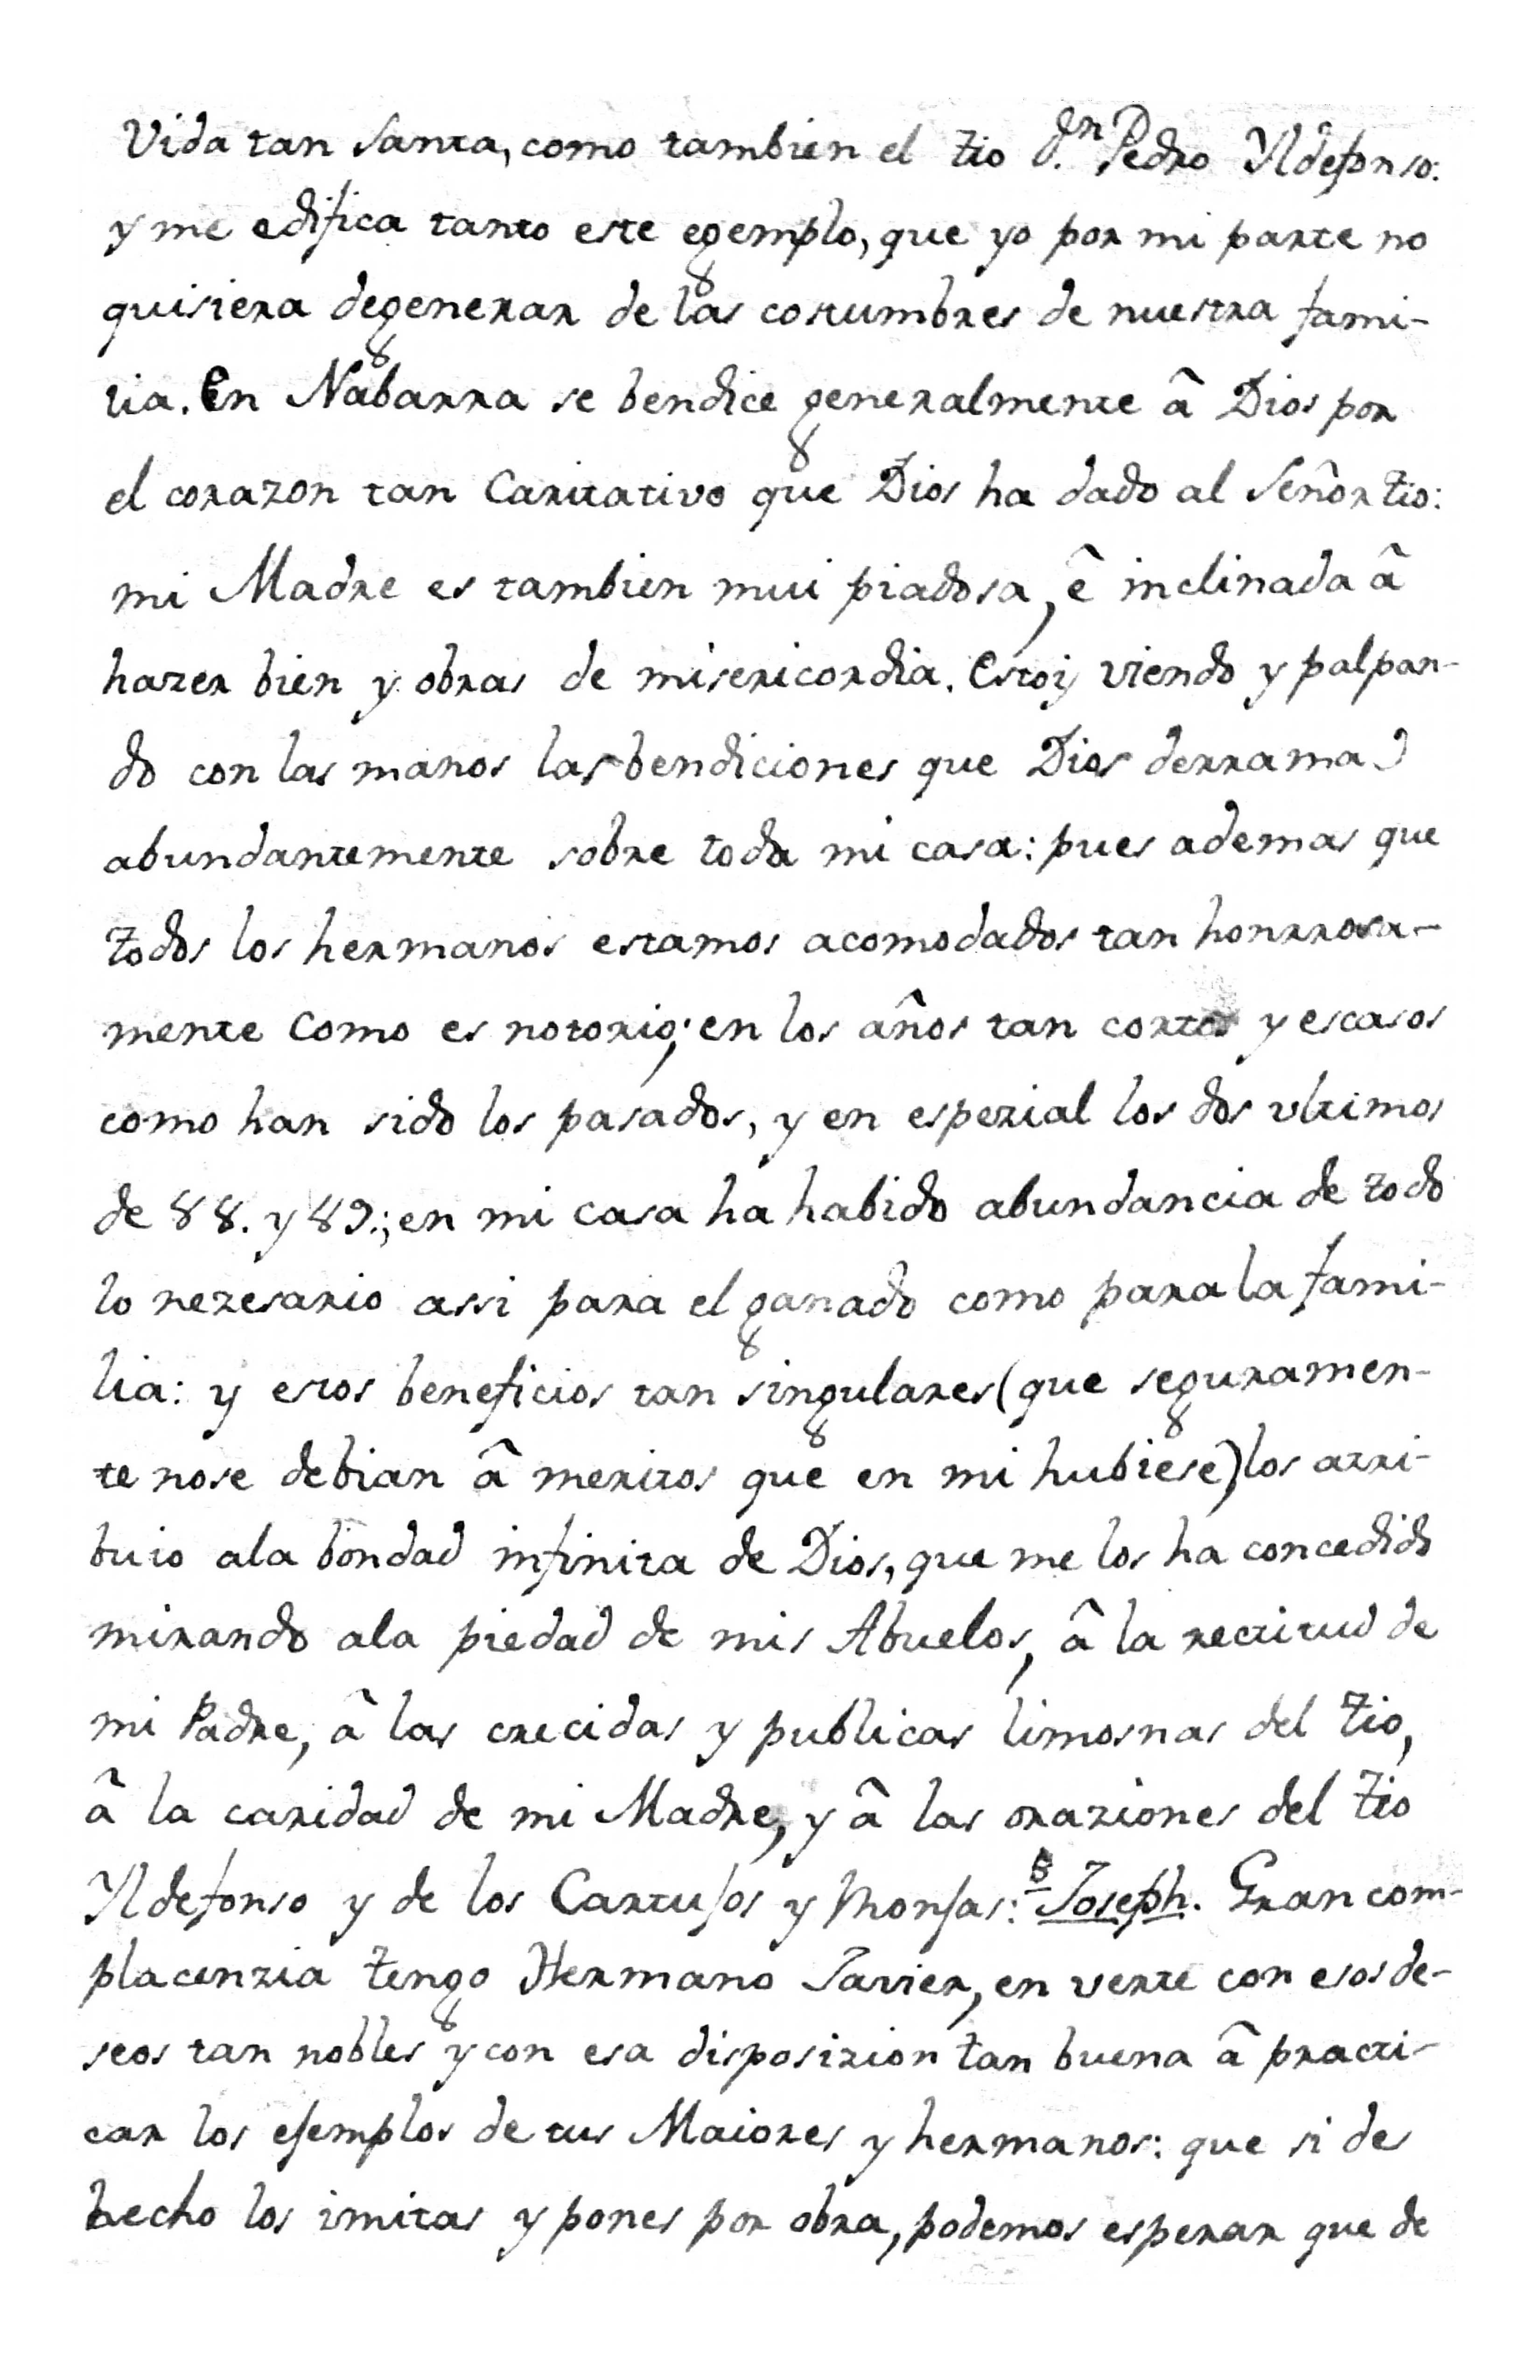 Vida tan Santa, como tambien el tio D.ⁿ Pedro Yldefonso:
y me edifica tanto este egemplo, que yo por mi parte no
quisiera degenerar de las costumbres de nuestra fami-
lia. En Nabarra se bendice generalmente â Dios por
el corazon tan Caritativo que Dios ha dado al Señor tio:
mi Madre es tambien mui piadosa, ê inclinada â
hazer bien y obras de misericordia. Estoi viendo y palpan-
do con las manos las bendiciones que Dios derrama
abundantemente sobre toda mi casa: pues ademas que
todos los hermanos estamos acomodados tan honrrosa-
mente Como es notorio; en los años tan cortos y escasos
como han sido los pasados, y en espezial los dos vltimos
de 88. y 89.; en mi casa ha habido abundancia de todo
lo nezesario assi para el ganado como para la fami-
lia: y estos beneficios tan singulares (que seguramen-
te nose debian â meritos que en mi hubiese) los atri-
buio ala bondad infinita de Dios, que me los ha concedido
mirando ala piedad de mis Abuelos, â la rectitud de
mi Padre, â las crecidas y publicas limosnas del tio,
â la caridad de mi Madre, y â las oraziones del tio
Yldefonso y de los Cartujos y Monjas: Joseph. Gran com-
placenzia tengo Hermano Javier, en verte con esos de-
seos tan nobles y con esa disposizion tan buena â practi-
car los ejemplos de tus Maiores y hermanos: que si de
hecho los imitas y pones por obra, podemos esperar que de